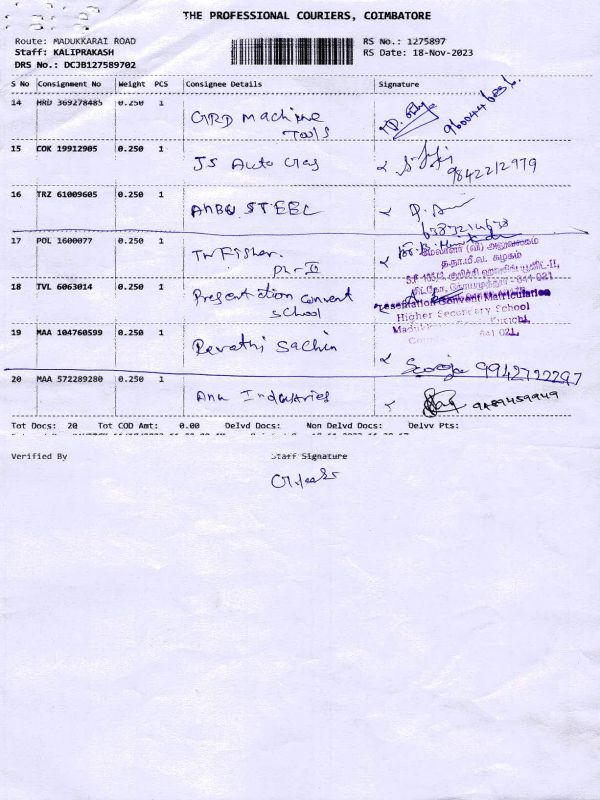 THE PROFESSIONAL COURIERS, COIMBATORE
Route: MADUKKARAI ROAD
RS No.: 1275897
Staff: KALIPRAKASH
RS Date: 18-Nov-2023
DRS No.: DCJB127589702
S No Consignment No Weight PCS Consignee Details Signature
14 HRD 369278485 0.250 1 GRD Machine
Tools
15 COK 19912905 0.250 1 JS Auto Cas 9842212979
16 TRZ 61009605 0.250 1 ANBU STEEL
17 POL 1600077 0.250 1 Fisher.
Ph-II
18 TVL 6063014 0.250 1 Presentation Convent
School
Presentation Convent Matriculation
Higher Secondary School
Kurichi,
641 021.
19 MAA 104760599 0.250 1 Revathi Sachin
Saroja 9942722297
20 MAA 572289280 0.250 1 Anu Industries 9489459949
Tot Docs: 20 Tot COD Amt: 0.00 Delvd Docs: Non Delvd Docs: Delvv Pts:
Verified By Staff Signature